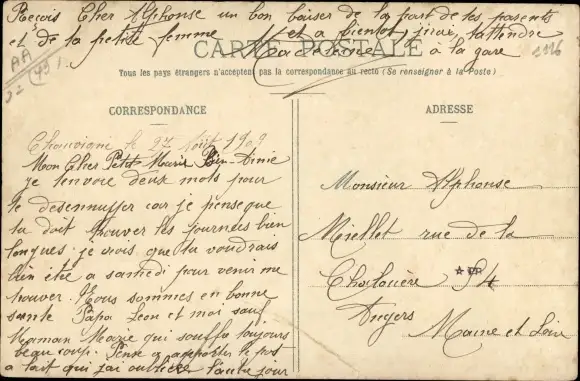 Reçois Cher Alphonse un bon baiser de la part de tes parents
et de ta petite femme et a bientôt j'irai t'attendre
Maderenne à la gare
CARTE POSTALE
Tous les pays étrangers n'acceptent pas la correspondance au recto (Se renseigner à la Poste)
CORRESPONDANCE
le 27 Août 1909
Mon Cher Petit Marie Bien Aimé
Je t'envoie deux mots pour
te desennuyer car je pense que
tu doit trouver les journées bien
longues je crois que tu voudrais
bien être a samedi pour venir me
trouver. Nous sommes en bonne
sante Papa Leon et moi sauf
Maman Marie qui souffre toujours
beaucoup. Pense a apporter le pot
a lait qui j'ai oublié l'autre jour
ADRESSE
Monsieur Alphonse
Miellet rue de la
Chalouère 54
Angers
Maine et Loire